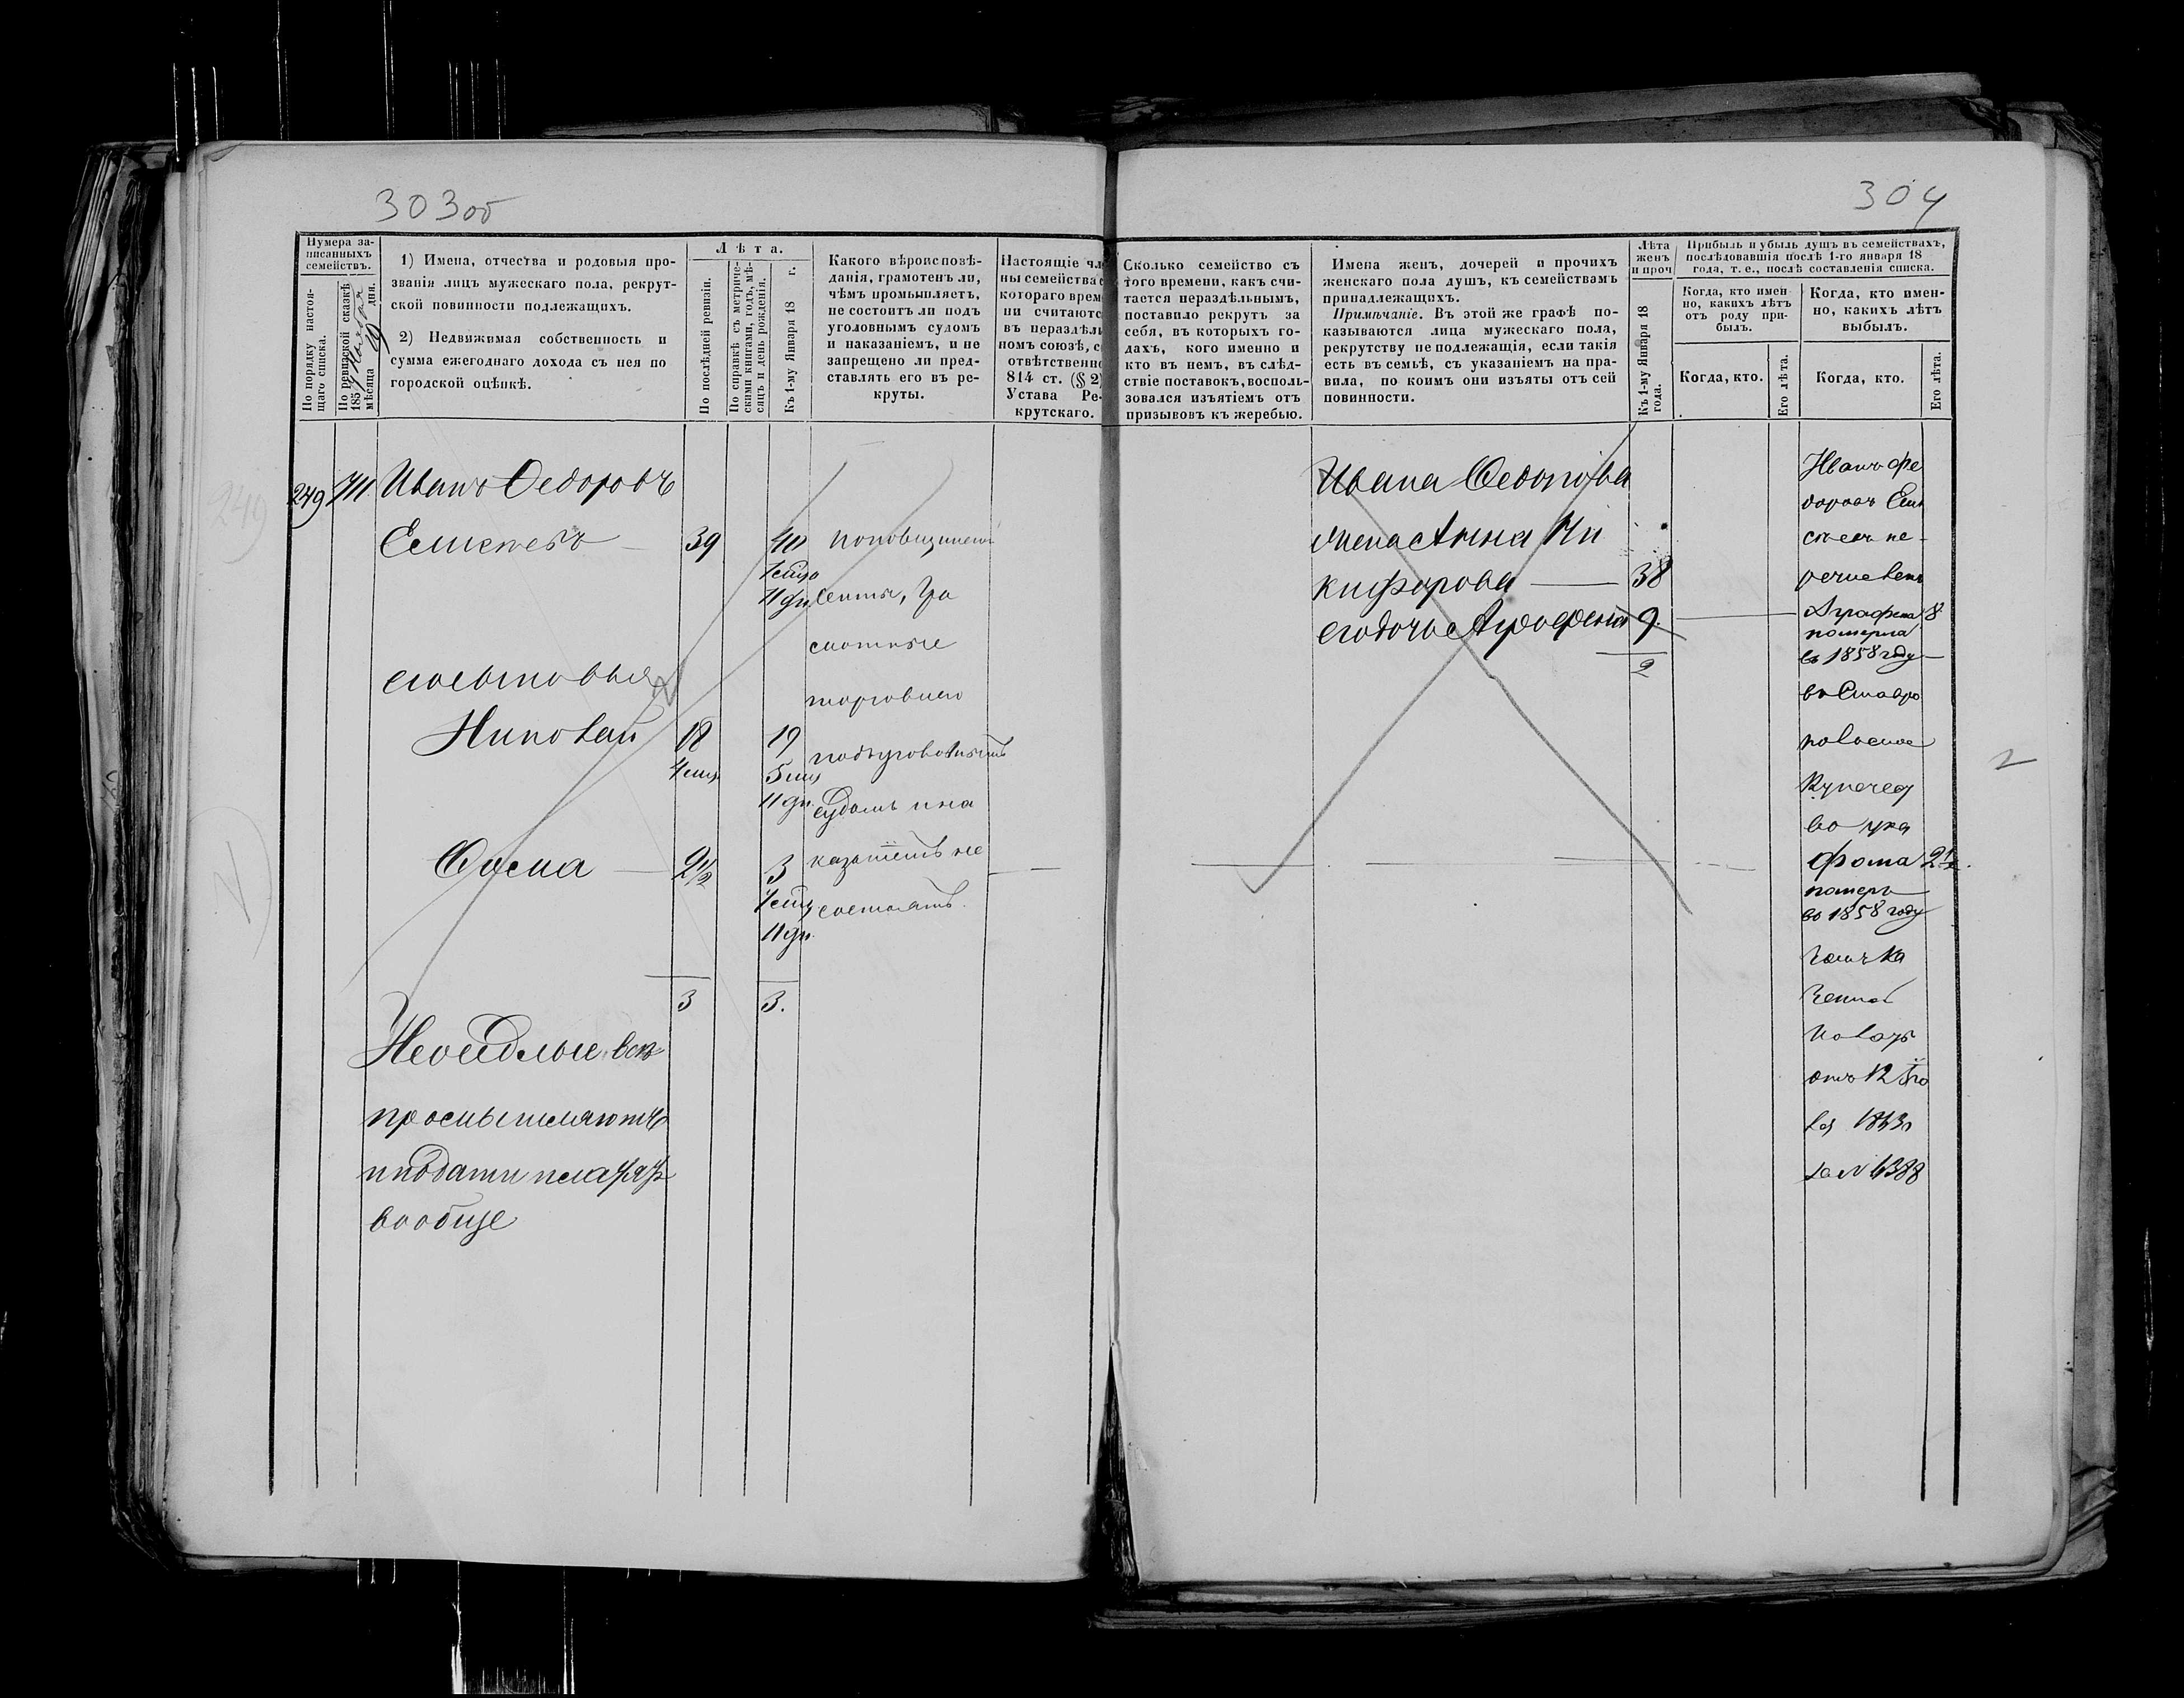 303об
304
Нумера за-
писанныхъ
семействъ.
По порядку настоя-
щаго списка.
По ревизской сказкѣ
185 мѣсяца дня.
1) Имена, отчества и родовыя про-
званія лицъ мужескаго пола, рекрут-
ской повинности подлежащихъ.
2) Недвижимая собственность и
сумма ежегоднаго дохода съ нея по
городской оцѣнкѣ.
Лѣта.
По послѣдней ревизіи.
По справкѣ съ метриче-
скими книгами, годъ, мѣ-
сяцъ и день рожденія.
Къ 1-му Января 18 г.
Какого вѣроисповѣ-
данія, грамотенъ ли,
чѣмъ промышляетъ,
не состоитъ ли подъ
уголовнымъ судомъ
и наказаніемъ, и не
запрещено ли пред-
ставлять его въ ре-
круты.
Настоящіе чл
ны семейства с
котораго врем
ни считаютс
въ нераздѣл
номъ союзѣ, с
отвѣтственно
814 ст. (§ 2)
Устава Ре-
крутскаго.
Сколько семейство съ
того времени, какъ счи-
тается нераздѣльнымъ,
поставило рекрутъ за
себя, въ которыхъ го-
дахъ, кого именно и
кто въ немъ, въ слѣд-
ствіе поставокъ, восполь-
зовался изъятіемъ отъ
призывовъ къ жеребью.
Имена женъ, дочерей и прочихъ
женскаго пола душъ, къ семействамъ
принадлежащихъ.
Примѣчаніе. Въ этой же графѣ по-
казываются лица мужескаго пола,
рекрутству не подлежащія, если такія
есть въ семьѣ, съ указаніемъ на пра-
вила, по коимъ они изъяты отъ сей
повинности.
Лѣта
женъ
и проч
Къ 1-му Января 18
года.
Прибыль и убыль душъ въ семействахъ,
послѣдовавшія послѣ 1-го января 18
года, т. е., послѣ составленія списка.
Когда, кто имен-
но, какихъ лѣтъ
отъ роду при-
былъ.
Когда, кто имен-
но, какихъ лѣтъ
выбылъ.
Когда, кто.
Его лѣта.
Когда, кто.
Его лѣта.
249
249 Иванъ Федоровъ
39 40
11 дн.
грамотные
торговлею
подъ уголовнымъ
судомъ и на
казаніемъ не
состоятъ.
его сыновья
Николай 18 19
11 дн.
Фома 2 1/2 3
11 дн.
3 3.
Неоседлые, всѣ
промышляютъ
и подати платятъ
вообще
Ивана Федорова
жена Анна Ни
кифорова 38
его дочь Аграфена 9.
2
Иванъ Фе
доровъ
Аграфена 8
померла
въ 1858 году
въ Ставро
польское
купечест
во ука
Фома 2 1/2
померъ
въ 1858 году
зомъ ка
зенной
палаты
отъ 12
за № 6388
2